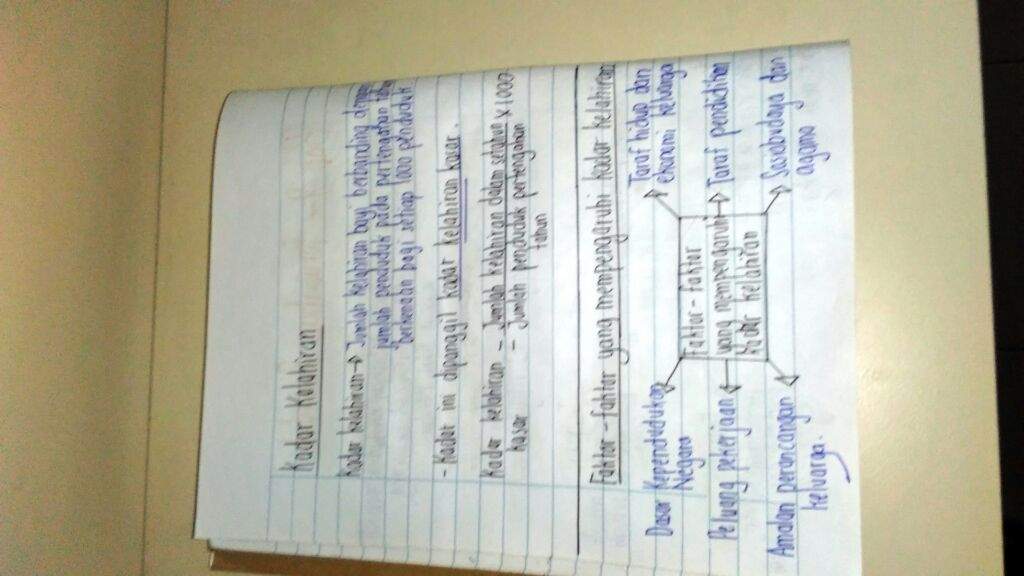 Kadar Kelahiran
Kadar kelahiran → Jumlah kelahiran bayi berbanding dengan
jumlah penduduk pada pertengahan tahun
berkenaan bagi setiap 1000 penduduk
- Kadar ini dipanggil kadar kelahiran kasar.
Kadar kelahiran - Jumlah kelahiran dalam setahun × 1000
kasar - Jumlah penduduk pertengahan
tahun
Faktor-faktor yang mempengaruhi kadar kelahiran
Dasar Kependudukan
Negara
Taraf hidup dan
ekonomi keluarga
Faktor-Faktor
yang mempengaruhi
kadar kelahiran
Peluang pekerjaan
Taraf pendidikan
Amalan perancangan
keluarga.
Sosiobudaya dan
agama